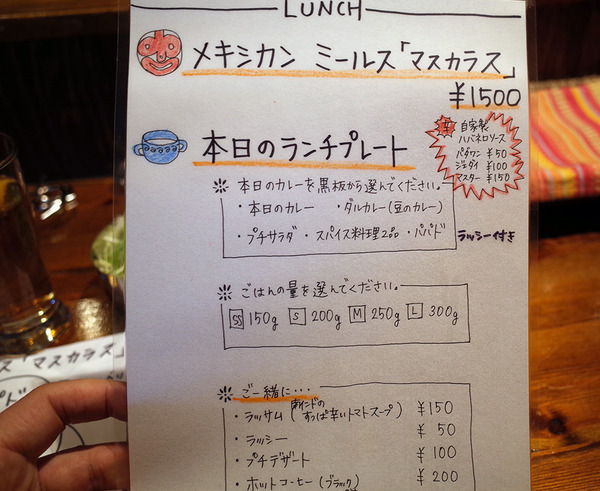 LUNCH
メキシカン ミールス「マスカラス」
¥1500
本日のランチプレート
辛 自家製
ハバネロソース
パダワン ¥50
ジェダイ ¥100
マスター ¥150
本日のカレーを黒板から選んでください。
・本日のカレー ・ダルカレー(豆のカレー)
・プチサラダ ・スパイス料理2品 ・パパド
ラッシー付き
ごはんの量を選んでください。
SS 150g S 200g M 250g L 300g
ご一緒に・・・
・ラッサム(南インドのすっぱ辛いトマトスープ) ¥150
・ラッシー ¥50
・プチデザート ¥100
・ホットコーヒー(ブラック) ¥200
ス「マスカラス」